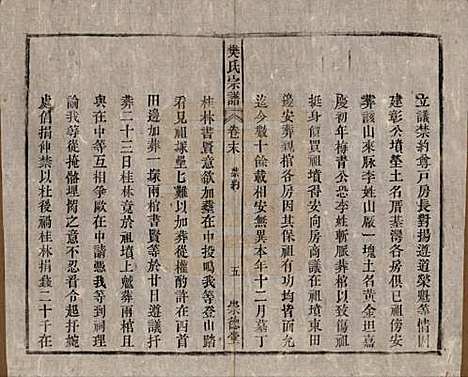 立議禁約尊戸房長對揚遵道榮魁等情因
建彰公墳塋土名厝基灣房下各祖傍安
葬該山來脉李姓山厰一塊土名黃金坦嘉
慶初年梅青公恐李姓斬脈葬塚以致傷祖
挺身價買祖墳得安向房商議在祖墳東田
邊安葬觀棺各房因其保祖有功皆面允
迄今數十餘載相安無異本年十二月墓丁
樊氏宗譜
卷末
禁約
五
崇德堂
桂林書賢意欲加葬在中投鳴我等登山踏
看見祖塚壘七難以加葬從權酌許在西首
田邊葬一塚兩棺書賢等於廿日遵議扦
葬二十三日桂林竟於祖墳上艫葬兩棺
與在中等互相歐毆在中請憑我等到祠理
論我等從塲俻理押閙之意不忍令起扦婉
處們捐伸禁以杜後禍桂林捐錢二十千在